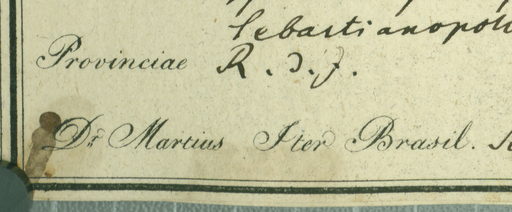 Sebastianopoli
Provinciae R. d. J.
Dr. Martius Iter Brasil.